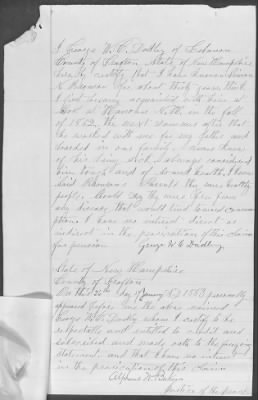 I George W. C. Dudley of Lebanon
County of Grafton, State of New Hampshire
hereby certify that I have known
for about thirty years. that
I first became acquainted with him at
School at Hanover N.H. in the fall
of 1852, the next summer after that
he worked with me for my father and
boarded in our family. I never knew
of his being sick, I always considered
him tough and of sound health, I knew
Said they were healthy
people, Would say they were free from
any disease that would lead toward consum-
ption. I have no interest direct or
indirect in the prosecution of this claim
for pension. George W C Dudley
State of New Hampshire
County of Grafton
On this day of January AD 1883 personally
appeared before me the above named
George W. C. Dudley whom I certify to be
respectable and entitled to credit and
subscribed and made oath to the foregoing
statement, and that I have no interest
in the prosecution of this claim
Alpheus W.
Justice of the peace